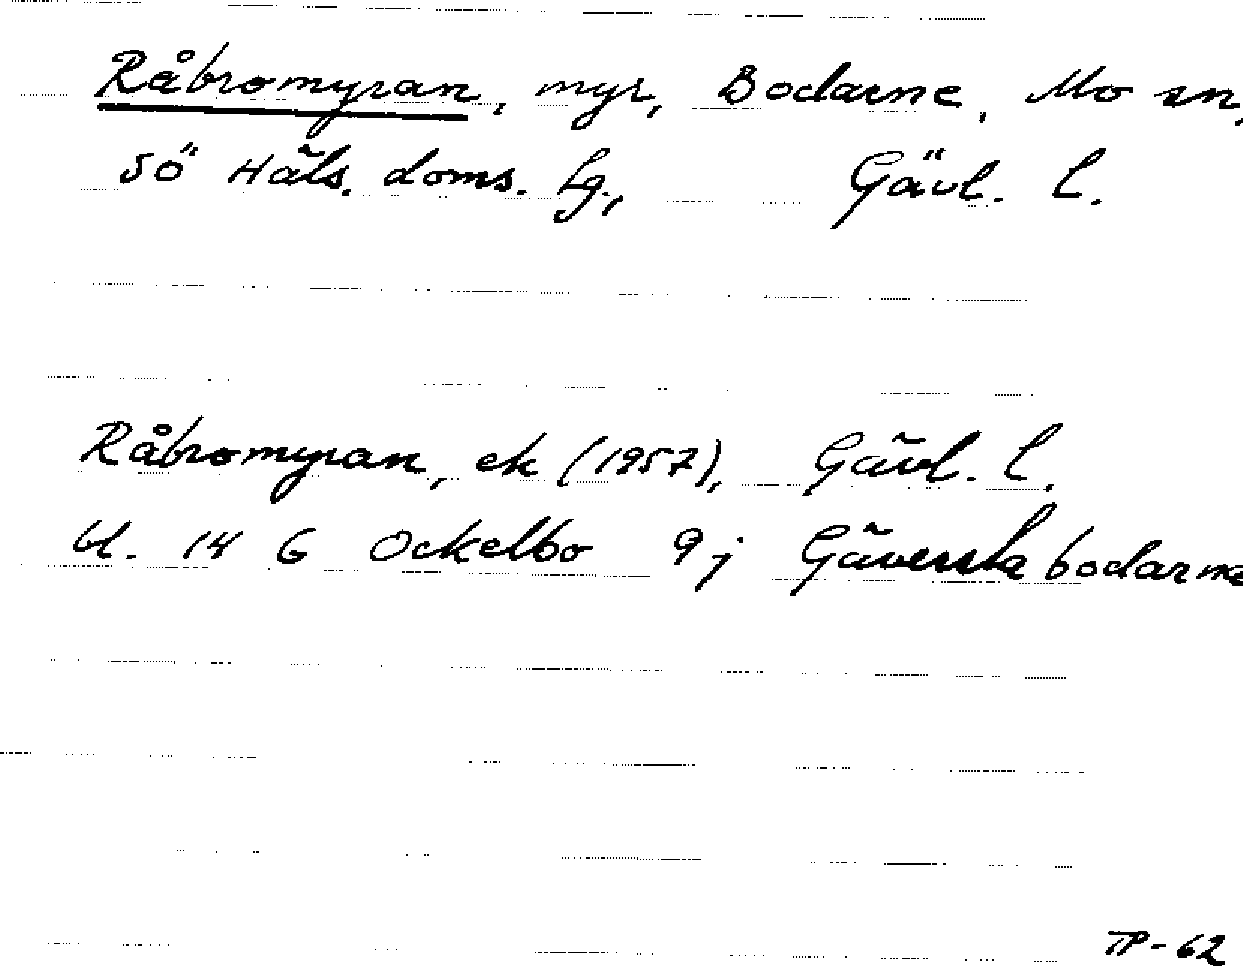 Råbromyran, myr, Bodarne, Mo sn,
Sö Häls. doms. lg., Gävl. l.
Råbromyran, ek (1957), Gävl. l.
bl. 14 G Ockelbo 9j Gäverstabodarne
TP-62